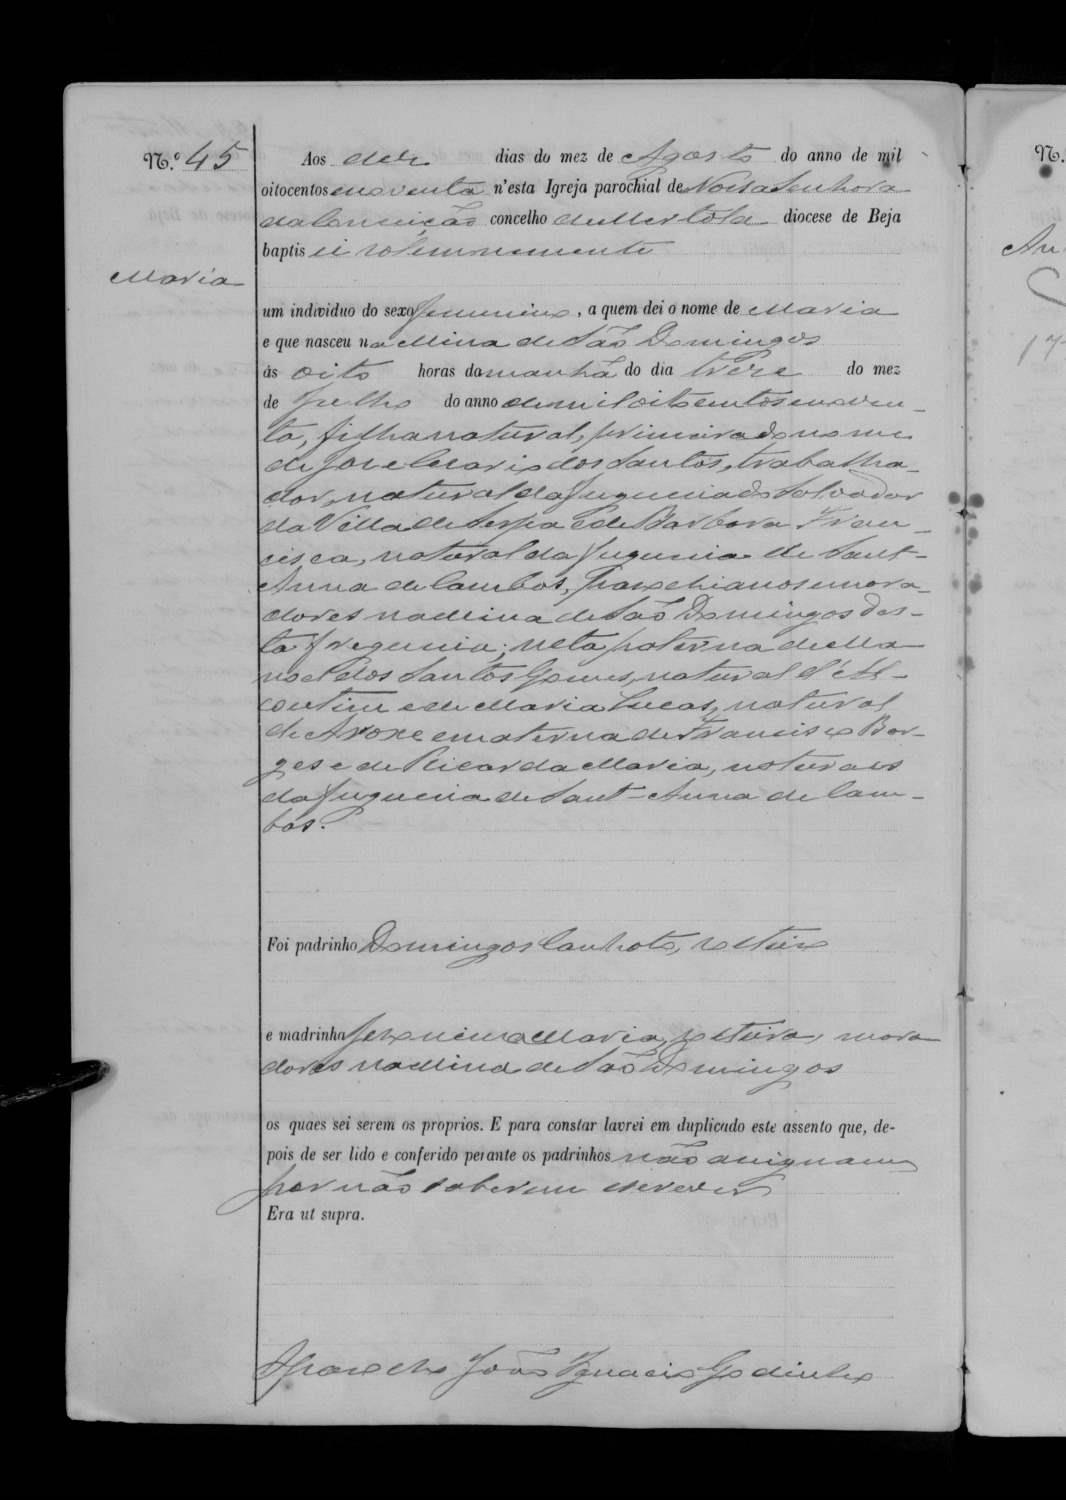 N.º 45
Aos dez dias do mez de Agosto do anno de mil
oitocentos e noventa n'esta Igreja parochial de Nossa Senhora
da Conceição concelho de Mertola diocese de Beja
baptisei solemnemente
Maria
um individuo do sexo femenino, a quem dei o nome de Maria
e que nasceu na Mina de São Domingos
ás oito horas da manhã do dia treze do mez
de Julho do anno de mil oitocentos e noven-
ta, filha natural, primeira do nome
de José Maria dos Santos, trabalha-
dor, natural da freguezia do Salvador
da Villa de Serpa e de Barbara Fran-
cisca, natural da freguezia de Sant-
Anna de Cambas, parochianos e mora-
dores na Mina de São Domingos des-
ta freguezia; neta paterna de Ma-
noel dos Santos Gomes, natural d'Al-
coutim e de Maria Lucas, natural
de e materna de Francisco Bor-
ges e de Ricarda Maria, naturaes
da freguezia de Sant-Anna de Cam-
bas.
Foi padrinho Domingos Canhoto, solteiro
e madrinha Jeronima Maria, solteira, mora
dores na Mina de São Domingos
os quaes sei serem os proprios. E para constar lavrei em duplicado este assento que, de-
pois de ser lido e conferido perante os padrinhos não assignam
por não saberem escrever
Era ut supra.
O Parocho João Ignacio Godinho
N.